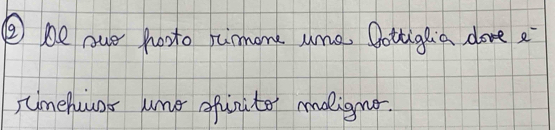 ② Al suo posto rimane una bottiglia dove è
rinchiuso uno spirito maligno.